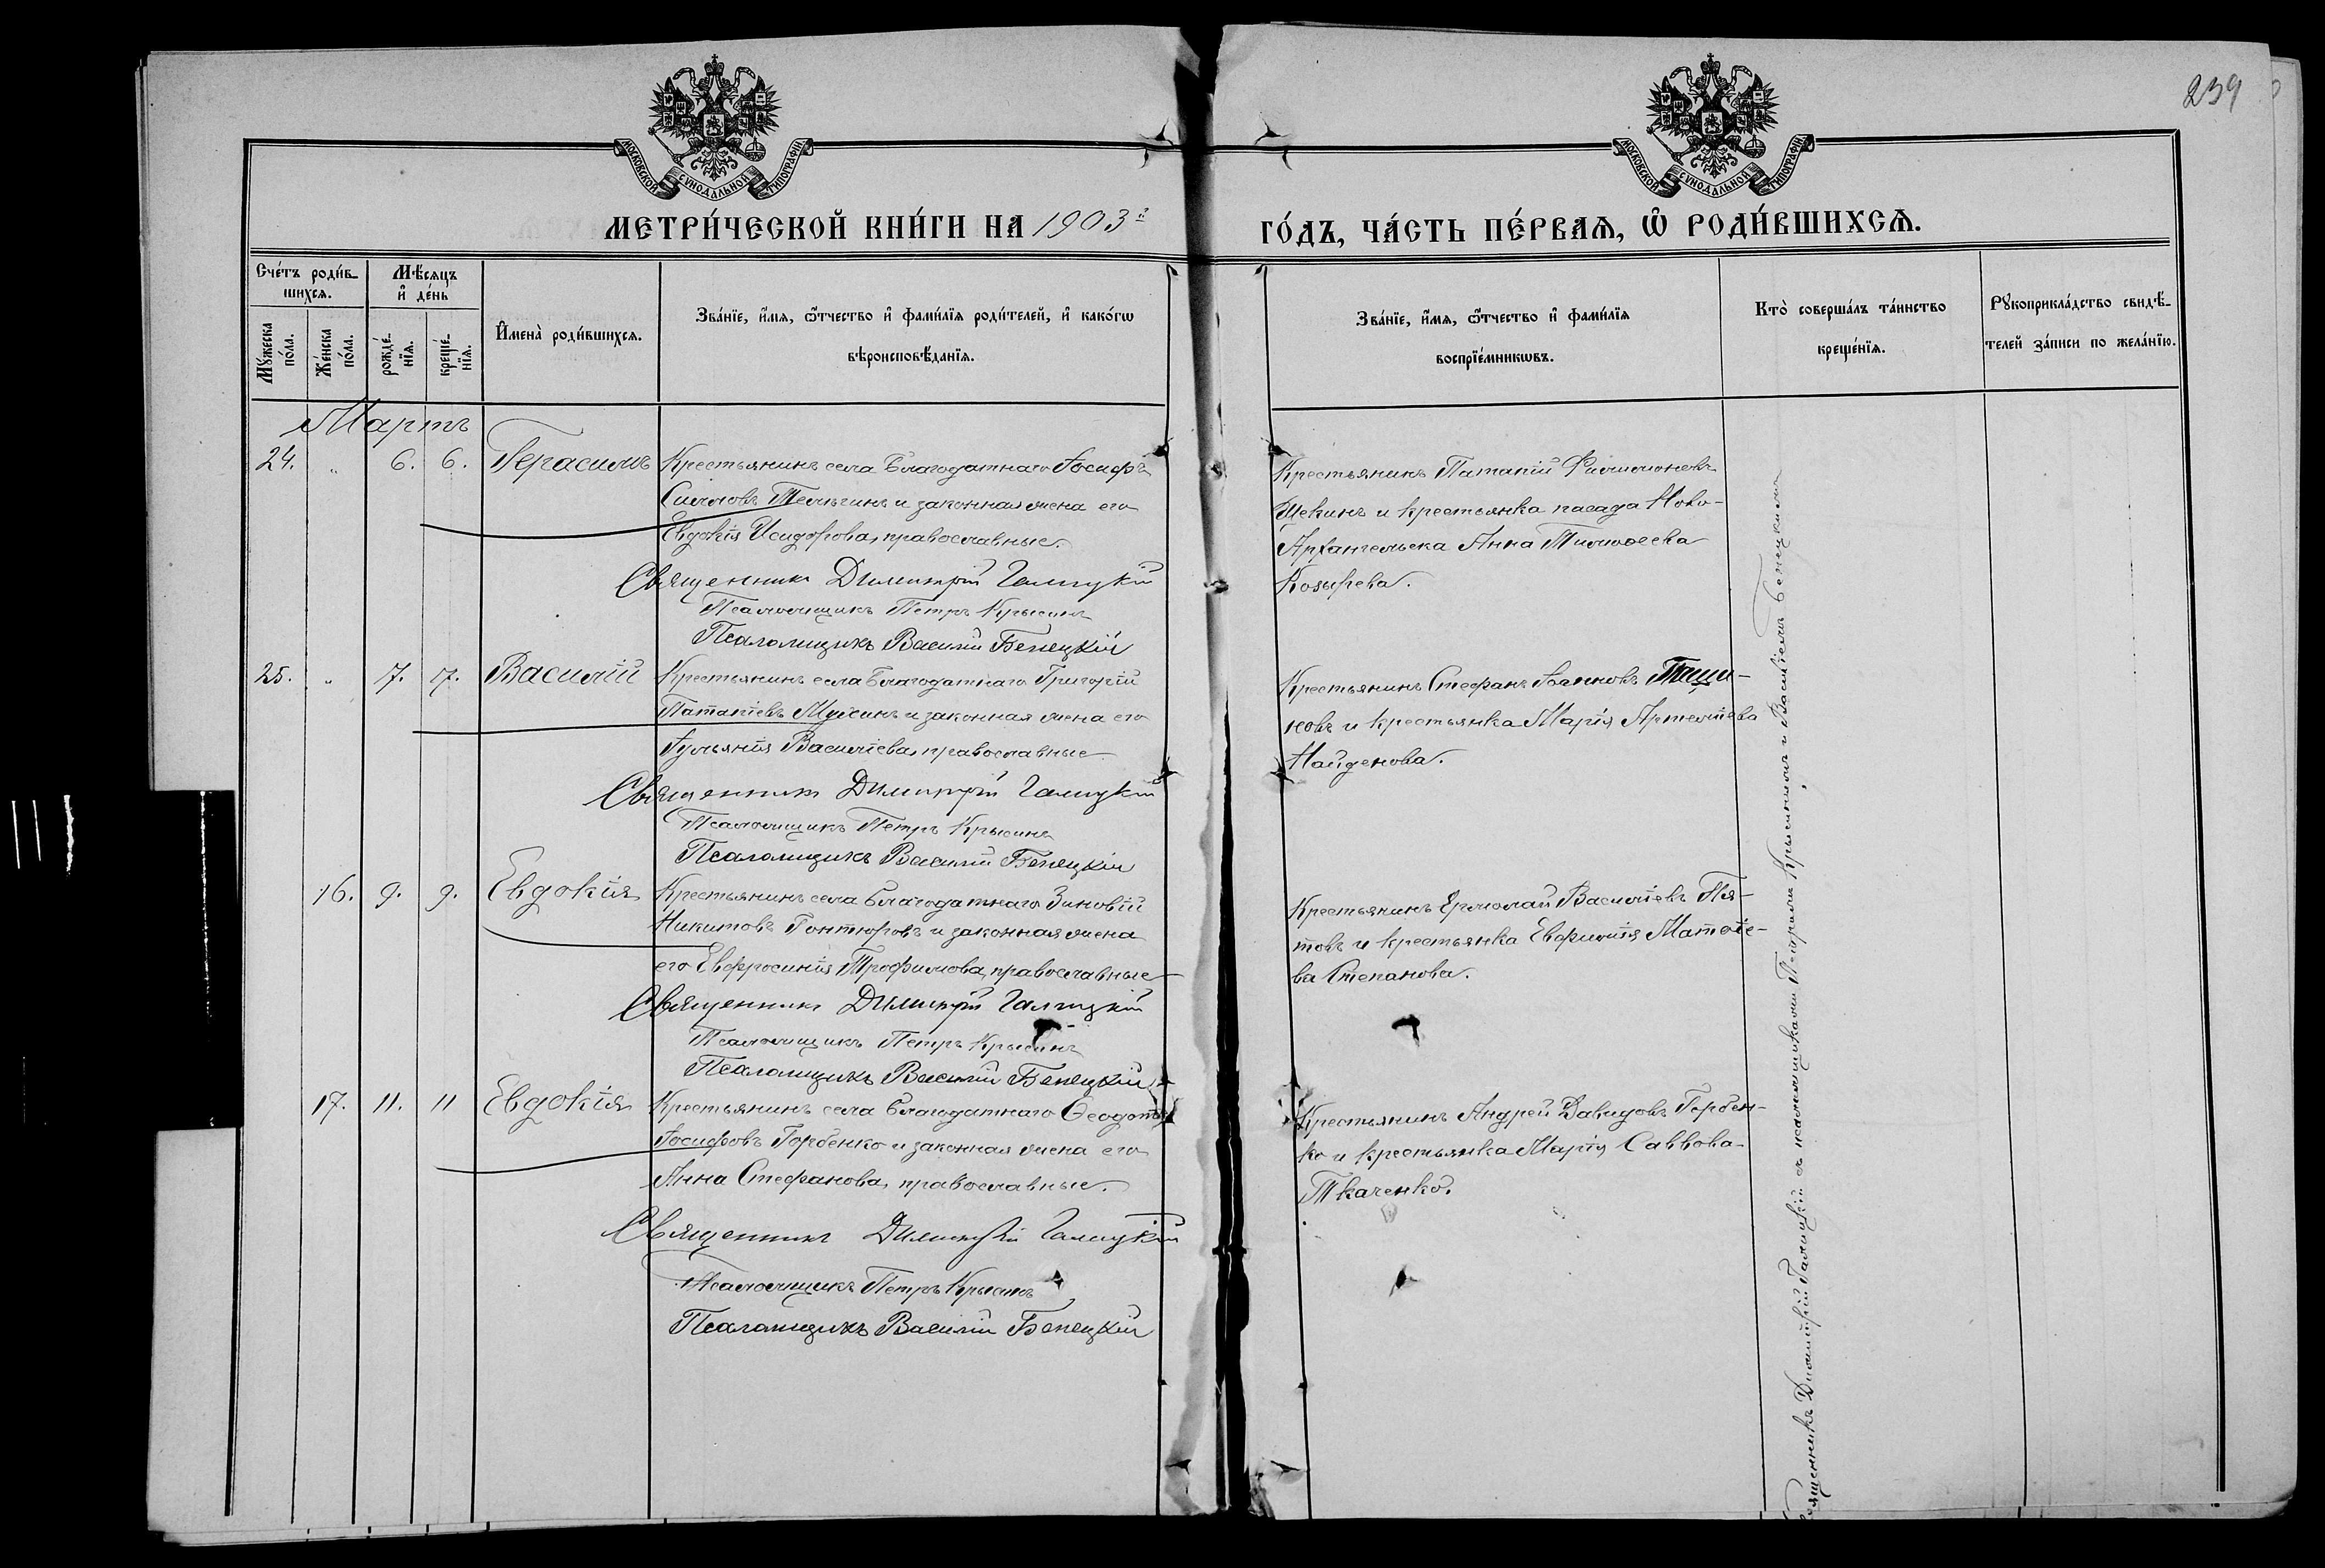 239
МОСКОВСКОЙ СѴНОДАЛЬНОЙ ТИПОГРАФІИ
МОСКОВСКОЙ СѴНОДАЛЬНОЙ ТИПОГРАФІИ
МЕТРИ́ЧЕСКОЙ КНИ́ГИ НА 1903й
ГО́ДЪ, ЧА́СТЬ ПЕ́РВАѦ, Ѽ РОДИ́ВШИХСѦ.
Сче́тъ роди́в-
шихсѧ.
Мꙋ́жеска по́ла.
Же́нска по́ла.
Мѣ́сѧцъ
и҆ де́нь
рожде́-
нїѧ.
креще́-
нїѧ.
И҆мена̀ роди́вшихсѧ.
Зва́нїе, и҆́мѧ, ѻ҆́тчество и҆ фами́лїѧ роди́телей, и҆ како́гѡ
вѣроисповѣ́данїѧ.
Зва́нїе, и҆́мѧ, ѻ҆́тчество и҆ фами́лїѧ
воспрїе́мникѡвъ.
Кто̀ соверша́лъ та́инство
креще́нїѧ.
Рꙋкоприкла́дство свидѣ́-
телей за́писи по жела́нїю.
Мартъ
24. „ 6. 6. Герасимъ Крестьянинъ села Благодатнаго Іосифъ
Симовъ Телегинъ и законная жена его
Евдокія Исидорова, православные.
Священникъ Димитрій Галицкій
Псаломщикъ Петръ Крысинъ
Псаломщикъ Василій Бенецкій
Крестьянинъ Патапій Филимоновъ
Щекинъ и крестьянка посада Ново-
Архангельска Анна Тимоѳеева
Козырева.
25. „ 7. 7. Василій Крестьянинъ села Благодатнаго Григорій
Патапіевъ и законная жена его
Іульянія Васильева, православные
Священникъ Димитрій Галицкій
Псаломщикъ Петръ Крысинъ
Псаломщикъ Василій Бенецкій
Крестьянинъ Стефанъ Іоанновъ Таши-
новъ и крестьянка Марія Артеміева
Найденова.
16. 9. 9. Евдокія Крестьянинъ села Благодатнаго Зиновій
Никитовъ Гонтюровъ и законная жена
его Евфросинія Трофимова, православные
Священникъ Димитрій Галицкій
Псаломщикъ Петръ Крысинъ
Псаломщикъ Василій Бенецкій
Крестьянинъ Ермолай Васильевъ Пя-
товъ и крестьянка Евфимія Матѳіе-
ва Степанова.
17. 11. 11 Евдокія Крестьянинъ села Благодатнаго Ѳеодотъ
Іосифовъ Горбенко и законная жена его
Анна Стефанова, православные.
Священникъ Димитрій Галицкій
Псаломщикъ Петръ Крысинъ
Псаломщикъ Василій Бенецкій
Крестьянинъ Андрей Давидовъ Горбен-
ко и крестьянка Марія Саввова
Ткаченко.
Священникъ Димитрій Галицкій съ псаломщиками Петромъ Крысинымъ и Василіемъ Бенецкимъ